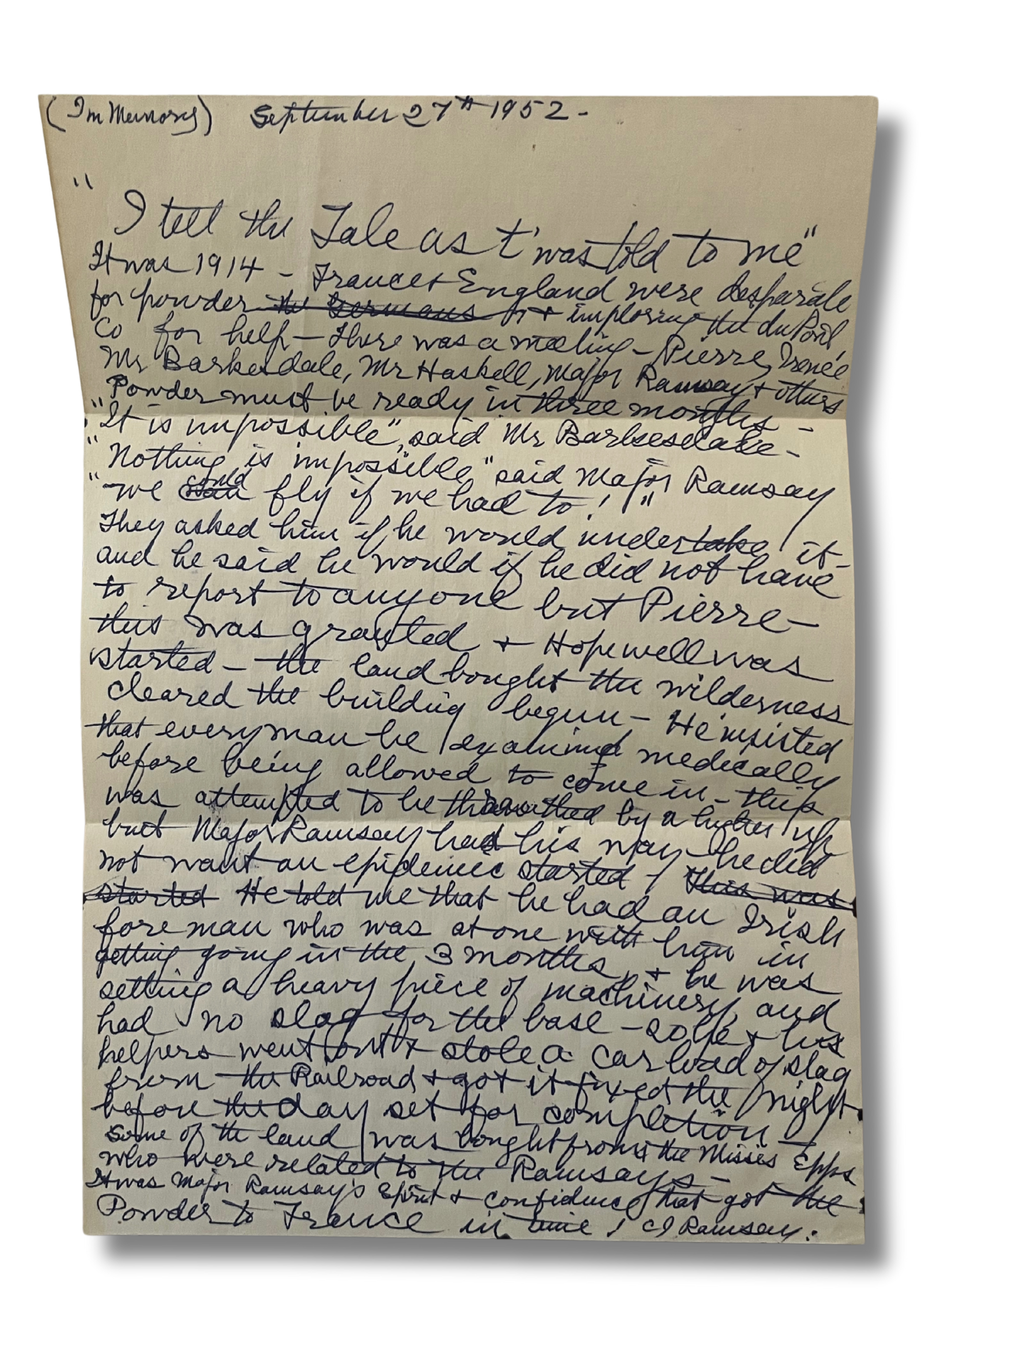 (In Memory) September 27th 1952 -
"I tell the Tale as t'was told to me"
It was 1914 - France & England were desparate
for powder the Germans & imploring the du Pont
Co for help - There was a meeting - Pierre, Irénée
Mr Barkesdale, Mr Haskell, Major Ramsay & others
Powder must be ready in three months -
"It is impossible", said Mr Barkesdale -
"Nothing is impossible" said Major Ramsay
"We could fly if we had to!"
They asked him if he would undertake it -
and he said he would if he did not have
to report to anyone but Pierre -
this was granted & Hopewell was
started - the land bought the wilderness
cleared the building begun - He insisted
that every man be examined medically
before being allowed to come in - this
was attempted to be thwarthed by a higher up
but Major Ramsay had his way - he did
not want an epidemic started - This was
started He told me that he had an Irish
foreman who was at one with him in
getting going in the 3 months, & he was
setting a heavy piece of machinery, and
had no slag for the base - so he & his
helpers went out & stole a car load of slag
from the Railroad & got it fixed the night
before the day set for completion -
Some of the land was bought from the Misses Epps
who were related to the Ramsays -
It was Major Ramsay's Spirit & confidence that got the
Powder to France in time! CJ Ramsay.